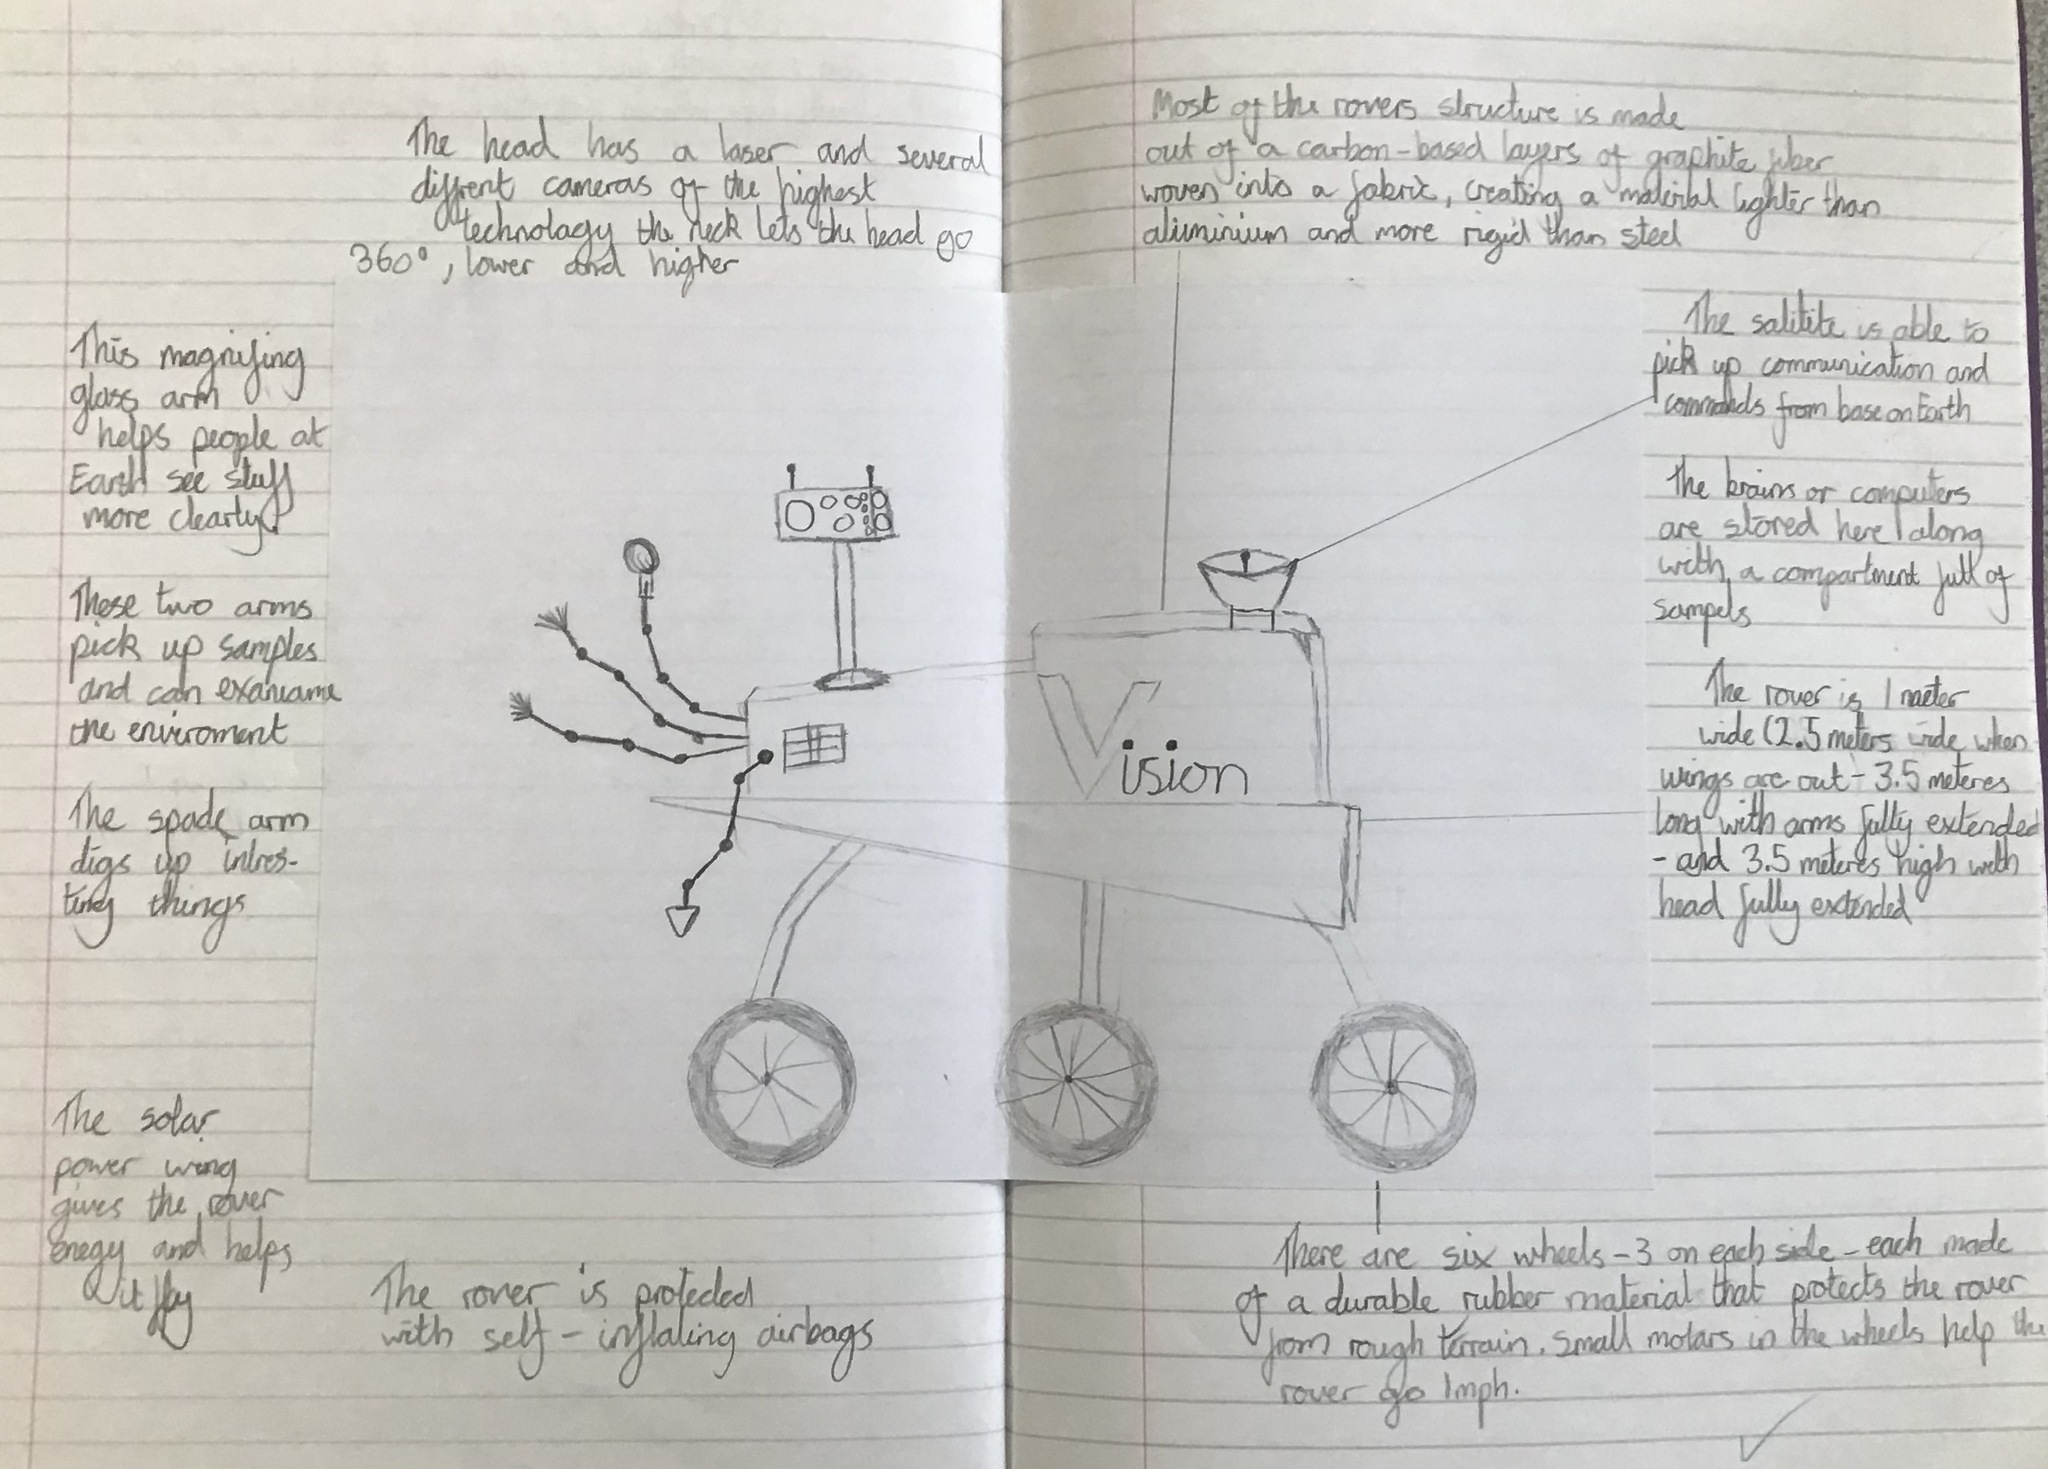 The head has a laser and several
diffrent cameras of the highest
technology the neck lets the head go
360°, lower and higher
This magnifing
glass arm
helps people at
Earth see stuff
more clearly.
These two arms
pick up samples
and can exaniame
the enviroment
The spade arm
digs up intres-
ting things
The solar
power wing
gives the rover
enegy and helps
it fly
The rover is protected
with self-inflating airbags
Vision
Most of the rovers structure is made
out of a carbon-based layers of graphite fiber
woven into a fabric, creating a material lighter than
aliminium and more rigid than steel
The salitite is able to
pick up communication and
commands from base on Earth
The brains or computers
are stored here along
with a compartment full of
sampels
The rover is 1 meter
wide (2.5 meters wide when
wings are out - 3.5 meteres
long with arms fully extended
- and 3.5 meteres high with
head fully extended
There are six wheels - 3 on each side - each made
of a durable rubber material that protects the rover
from rough terrain. Small motars in the wheels help the
rover go 1mph.